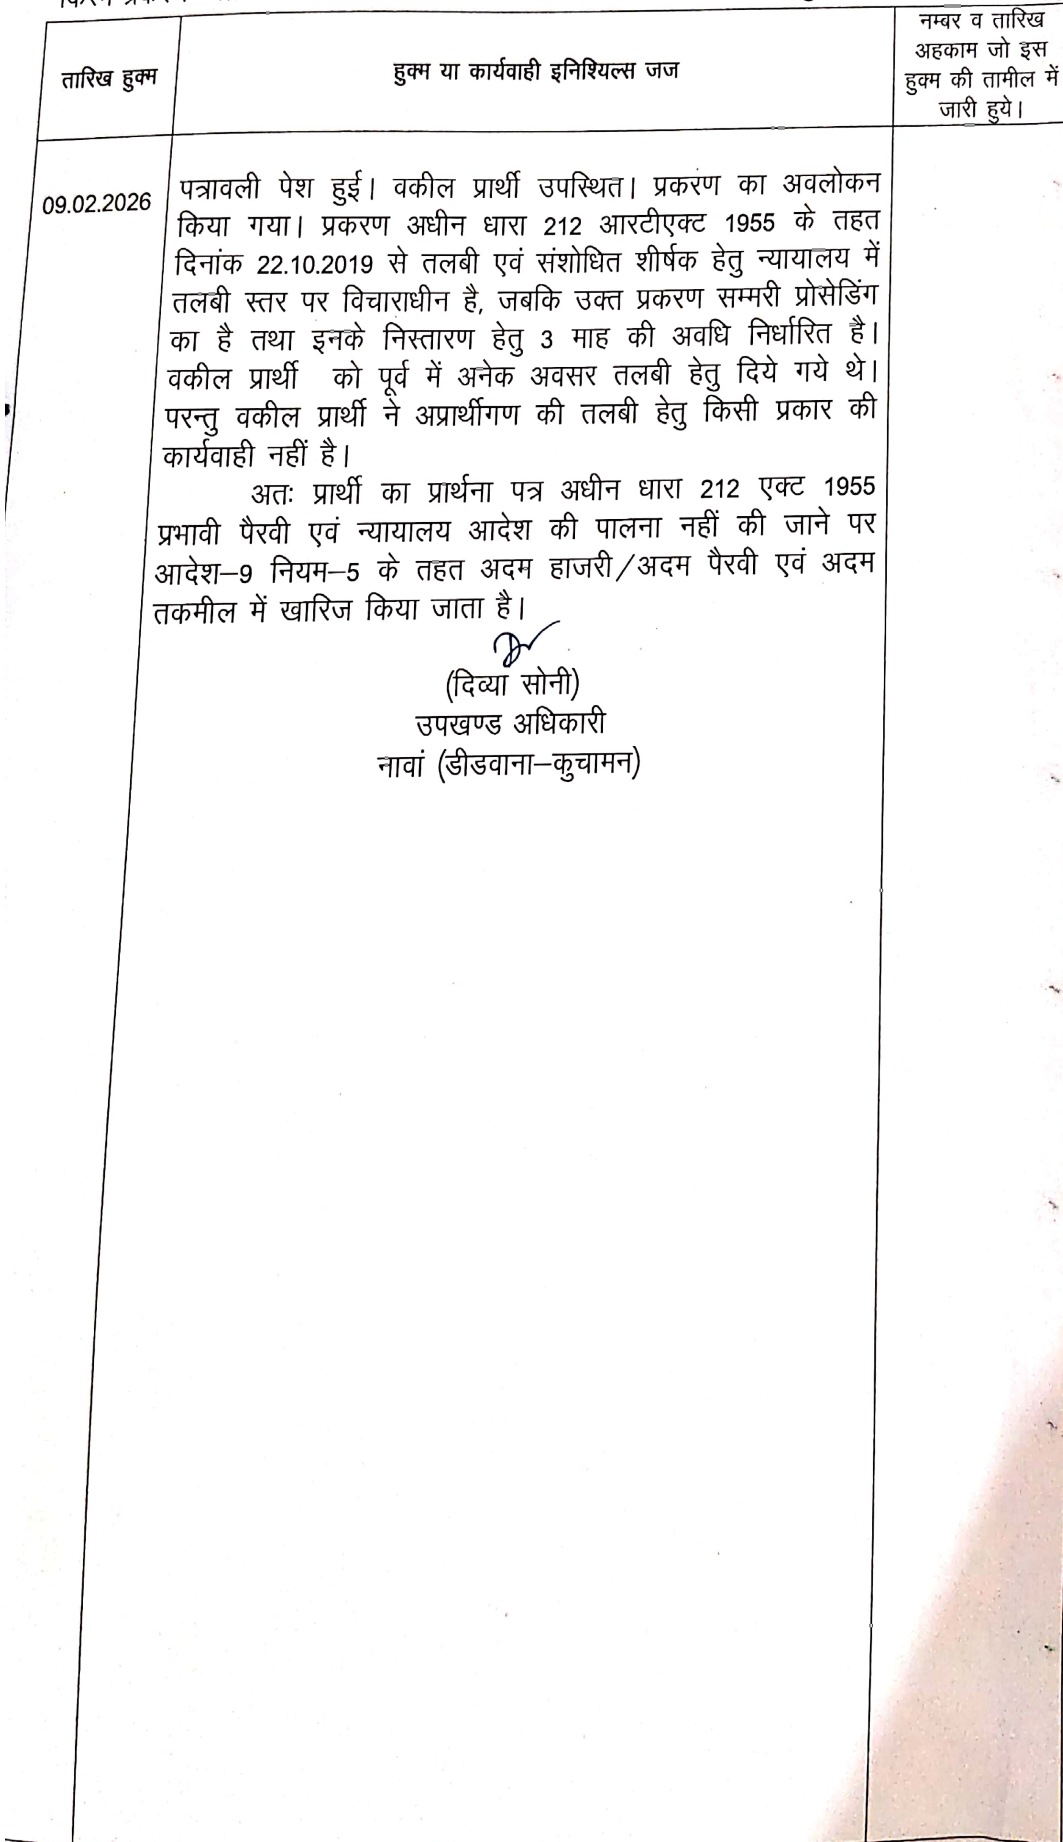 तारिख हुक्म
हुक्म या कार्यवाही इनिश्यिल्स जज
नम्बर व तारिख
अहकाम जो इस
हुक्म की तामील में
जारी हुये।
09.02.2026
पत्रावली पेश हुई। वकील प्रार्थी उपस्थित। प्रकरण का अवलोकन
किया गया। प्रकरण अधीन धारा 212 आरटीएक्ट 1955 के तहत
दिनांक 22.10.2019 से तलबी एवं संशोधित शीर्षक हेतु न्यायालय में
तलबी स्तर पर विचाराधीन है, जबकि उक्त प्रकरण सम्मरी प्रोसेडिंग
का है तथा इनके निस्तारण हेतु 3 माह की अवधि निर्धारित है।
वकील प्रार्थी को पूर्व में अनेक अवसर तलबी हेतु दिये गये थे।
परन्तु वकील प्रार्थी ने अप्रार्थीगण की तलबी हेतु किसी प्रकार की
कार्यवाही नहीं है।
अतः प्रार्थी का प्रार्थना पत्र अधीन धारा 212 एक्ट 1955
प्रभावी पैरवी एवं न्यायालय आदेश की पालना नहीं की जाने पर
आदेश–9 नियम–5 के तहत अदम हाजरी/अदम पैरवी एवं अदम
तकमील में खारिज किया जाता है।
(दिव्या सोनी)
उपखण्ड अधिकारी
नावां (डीडवाना–कुचामन)